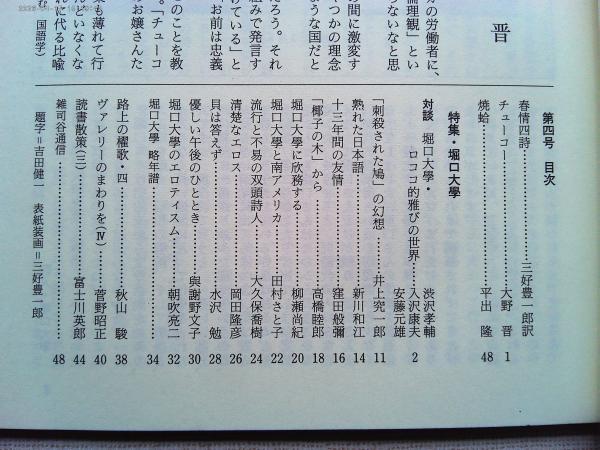 の労働者に、
倫理観」とい
らないなと思
間に激変す
つかの理念
ような国だと
だろう。それ
組みで発言す
けている」と
お前は忠義
のことを教
。「チューコ
お嬢さんた
葉も薄れて行
んといなくな
れに代る比喩
む 国語学)
晋
第四号 目次
春情四詩……三好豊一郎訳
チューコー……大野 晋 1
焼蛤……平出 隆 48
特集・堀口大學
対談 堀口大學・ロココ的雅びの世界……渋沢孝輔 入沢康夫 安藤元雄 2
「刺殺された鳩」の幻想……井上究一郎 11
熟れた日本語……新川和江 14
十三年間の友情……窪田般彌 16
「椰子の木」から……高橋睦郎 18
堀口大學に欣務する……柳瀬尚紀 20
堀口大學と南アメリカ……田村さと子 22
流行と不易の双頭詩人……大久保喬樹 24
清楚なエロス……岡田隆彦 26
貝は答えず……水沢 勉 28
優しい午後のひととき……與謝野文子 30
堀口大學のエロティスム……朝吹亮二 32
堀口大學 略年譜……34
路上の櫂歌・四……秋山 駿 38
ヴァレリーのまわりを(Ⅳ)……菅野昭正 40
読書散策(三)……富士川英郎 44
雑司谷通信……48
題字=吉田健一 表紙装画=三好豊一郎